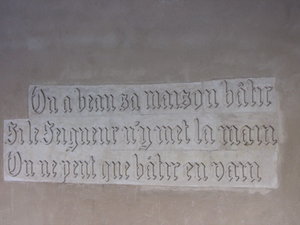 On a beau sa maison bâtir
Si le Seigneur n'y met la main
On ne peut que bâtir en vain